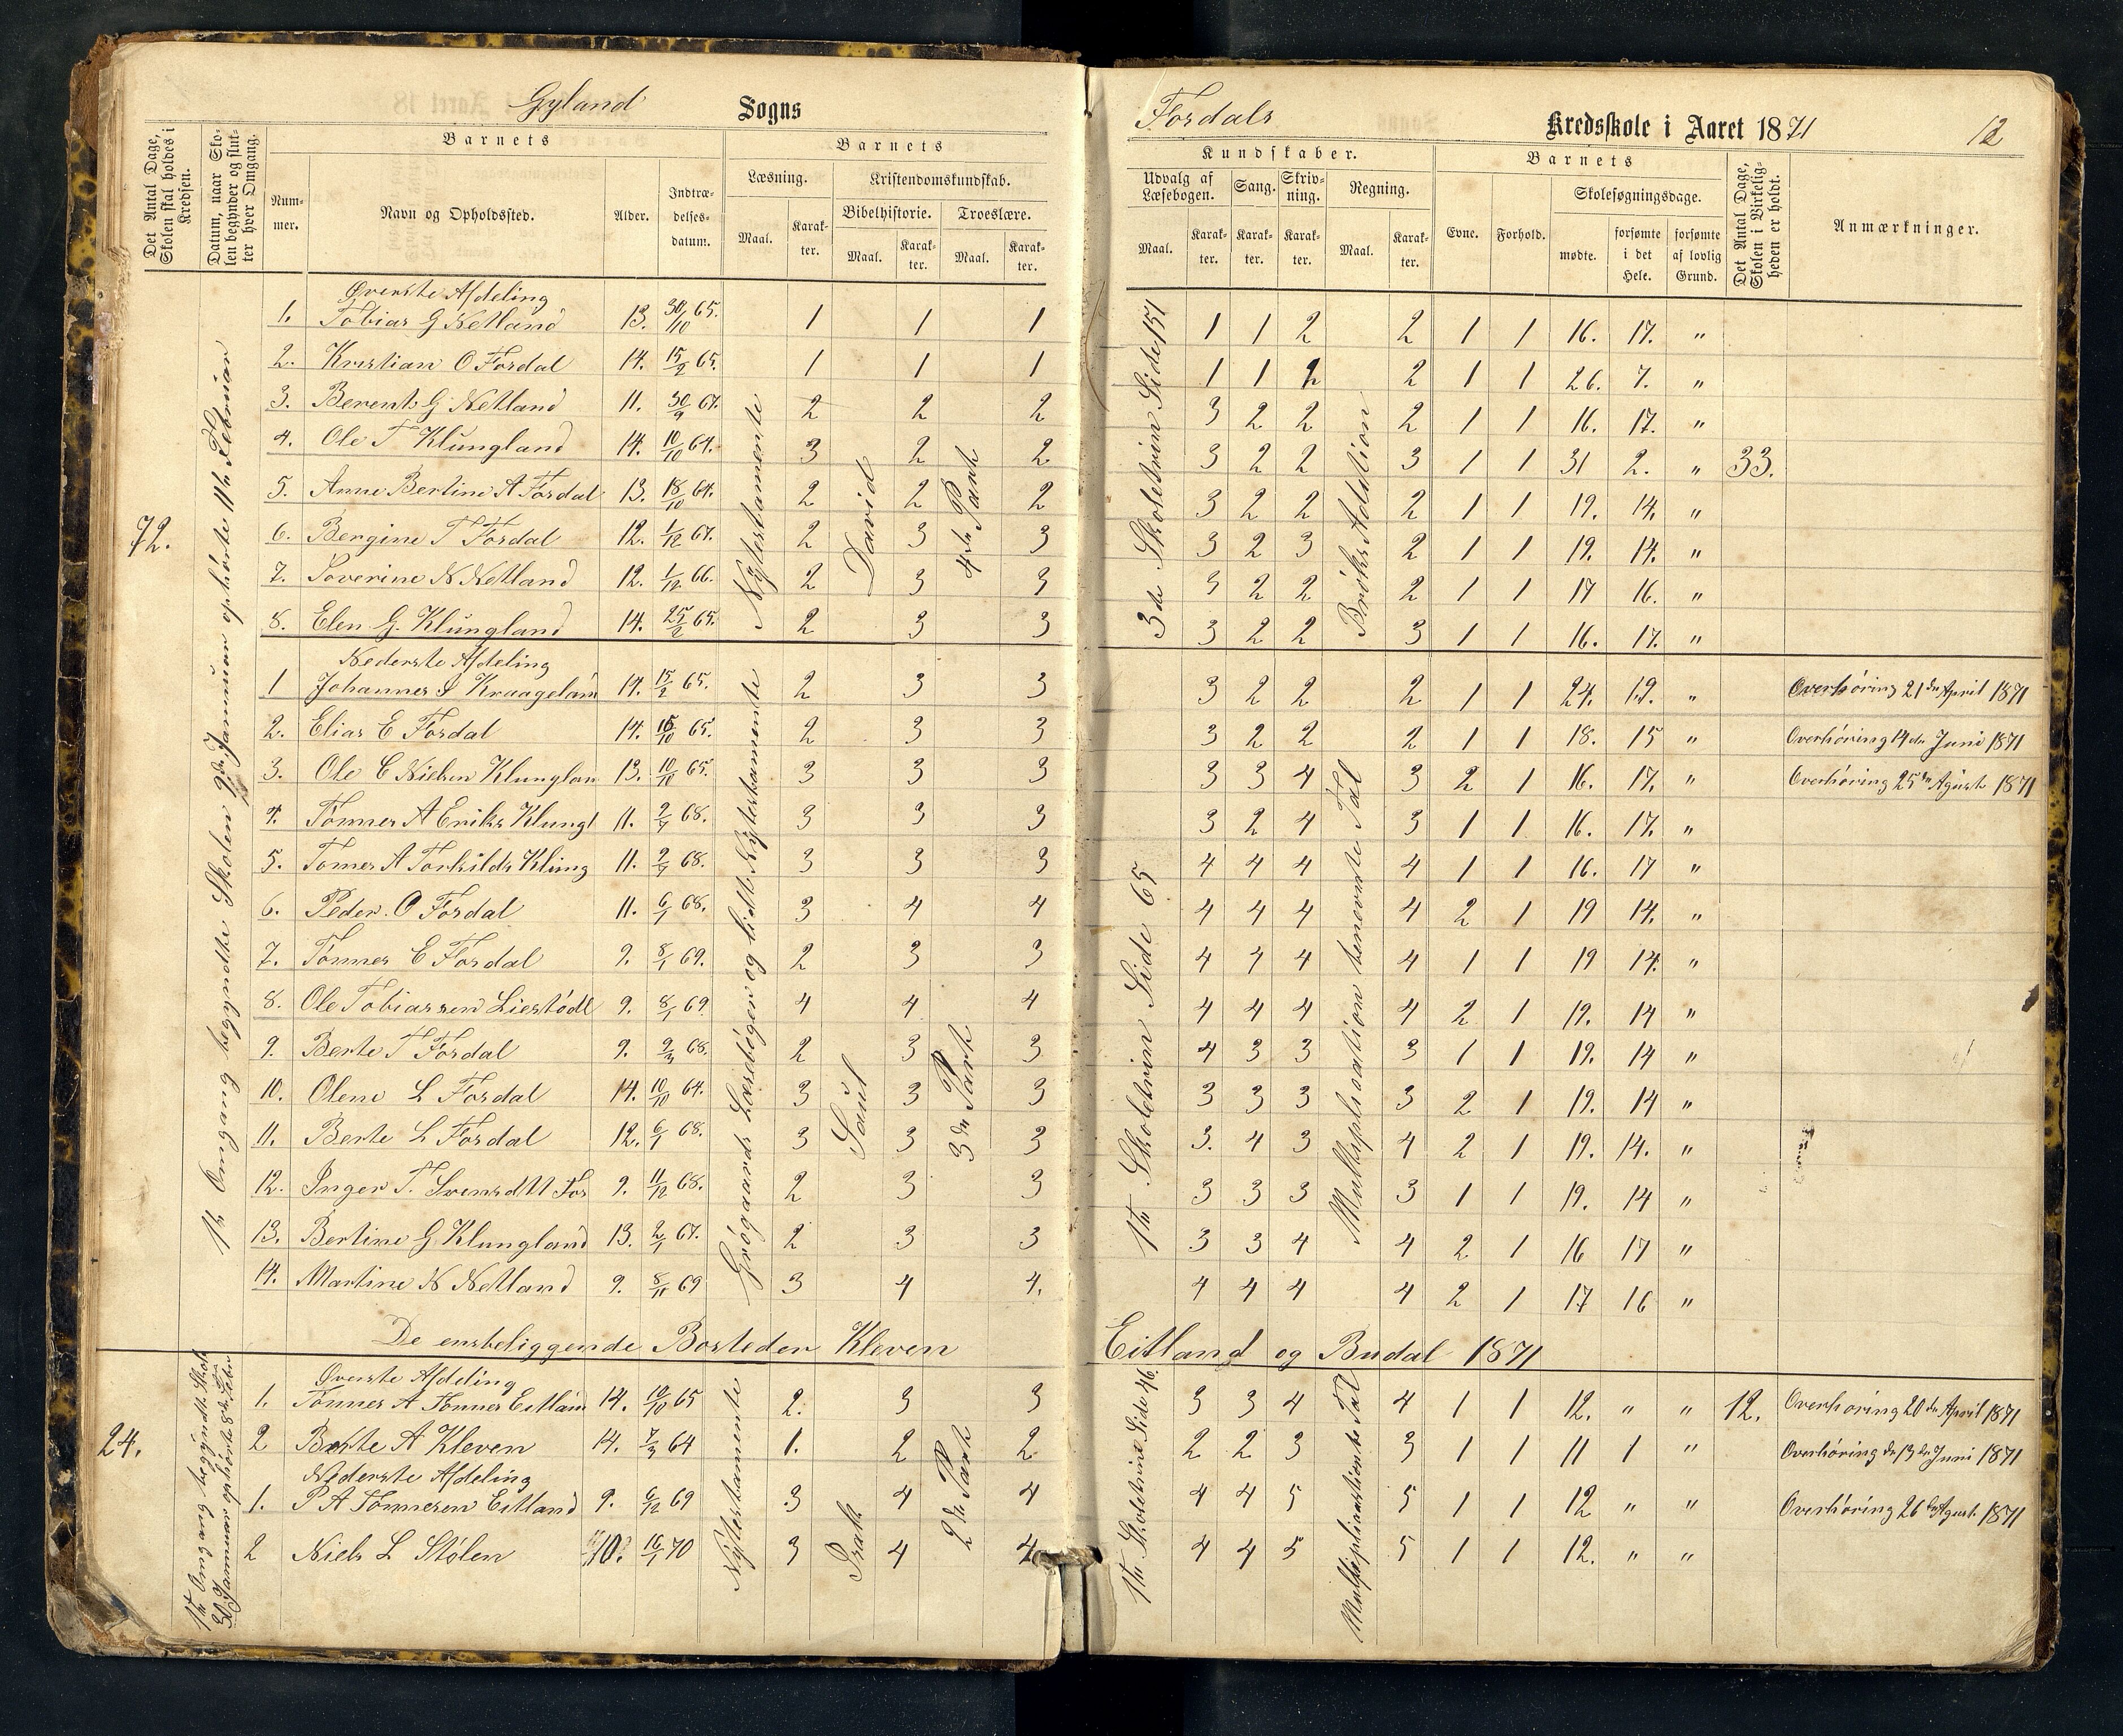 Gyland Sogns
Fosdals Kredsskole i Aaret 1871 12
Det Antal Dage, Skolen skal holdes i Kredsen.
Datum, naar Skolen begynder og slutter hver Omgang.
Barnets
Nummer.
Navn og Opholdssted.
Alder.
Indtrædelsesdatum.
Barnets
Læsning.
Maal.
Karakter.
Kristendomskundskab.
Bibelhistorie.
Maal.
Karakter.
Troeslære.
Maal.
Karakter.
Kundskaber.
Udvalg af Læsebogen.
Maal.
Karakter.
Sang.
Karakter.
Skrivning.
Karakter.
Regning.
Maal.
Karakter.
Barnets
Evne.
Forhold.
Skolesøgningsdage.
mødte.
forsømte i det Hele.
forsømte af lovlig Grund.
Det Antal Dage, Skolen i Virkeligheden er holdt.
Anmærkninger.
72.
1ste Omgang begyndte Skolen 9de Januar ophørte 11te Februar
Nytestamente
David
4de Part
3de Skoletrin Side 151
Brøks Addition
Øverste Afdeling
1. Tobias G Netland 13. 30/10 65. 1 1 1 1 1 2 2 1 1 16. 17. "
2. Kristian O Fosdal 14. 15/2 65. 1 1 1 1 1 2 2 1 1 26. 7. "
3. Berent G Netland 11. 30/9 67. 2 2 2 3 2 2 2 1 1 16. 17. "
4. Ole T Klungland 14. 10/10 64. 3 2 2 3 2 2 3 1 1 31 2. " 33.
5. Anne Bertine A Fosdal 13. 18/10 64. 2 2 2 3 2 2 2 1 1 19. 14. "
6. Bergine T Fosdal 12. 1/12 67. 2 3 3 3 2 3 2 1 1 19. 14. "
7. Soverine N Netland 12. 1/12 66. 2 3 3 3 2 2 2 1 1 17 16. "
8. Elen G. Klungland 14. 25/2 65. 2 3 3 3 2 2 3 1 1 16. 17. "
Nederste Afdeling
Grøgaards Læsebøger og lidt Nytestamente
Saul
3de Part
1ste Skoletrin Side 65
Multiplication benevente Tal
1 Johannes S Kraagelan 14. 15/2 65. 2 3 3 3 2 2 2 1 1 24. 19. " Overhøring 21de April 1871
2. Elias E Fosdal 14. 15/10 65. 2 3 3 3 2 2 2 1 1 18. 15 " Overhøring 14de Juni 1871
3. Ole C Nielsen Klunglan 13. 10/10 65. 3 3 3 3 3 4 3 2 1 16. 17. " Overhøring 25de Agust 1871
4. Tønnes A Eriks Klungl 11. 2/4 68. 3 3 3 3 2 4 3 1 1 16. 17. "
5. Tønes A Torkilds Klung 11. 2/4 68. 3 3 3 4 4 4 4 1 1 16. 17 "
6. Peder. O Fosdal 11. 6/1 68. 3 4 4 4 4 4 4 2 1 19 14. "
7. Tønnes E Fosdal 9. 8/1 69. 2 3 3 4 4 4 4 1 1 19 14. "
8. Ole Tobiassen Liestödl 9. 8/1 69 4 4 4 4 4 4 4 2 1 19. 14 "
9. Berte T Fosdal 9. 9/3 68. 2 3 3 4 3 3 3 1 1 19. 14 "
10. Olene L Fosdal 14. 10/10 64. 3 3 3 3 3 3 3 2 1 19. 14 "
11. Berte L Fosdal 12. 6/1 68. 3 3 3 3. 4 3 4 2 1 19. 14. "
12. Inger T. Svensdtt Fos 9. 11/12 68. 2 3 3 3 3 3 3 1 1 19. 14 "
13. Bertine G Klungland 13. 2/1 67. 2 3 3 3 3 4 4 2 1 16 17 "
14. Martine N Netland 9. 8/11 69 3 4 4. 4 4 4 4 2 1 17 16 "
De ensbeliggende Bosteder Kleven Eitland og Budal 1871
24.
1ste Omgang begyndte Skole 30 Januar ophørte 8de Febr
Nytestamente
Isak
2de Part
1ste Skoletrin Side 46.
Multiplication Tal
Øverste Afdeling
1. Tønnes A Tønnes Eitlan 14. 10/10 65 2. 3 3 3 3 4 4 1 1 12. " " 12. Overhøring 20de April 1871
2 Berte A Kleven 14. 7/3 64 1. 2 2 2 2 3 3 1 1 11 1 " Overhøring d 13de Juni 1871
Nederste Afdeling
1. P A Tønnesen Eitland 9. 6/12 69 3 4 4 4 4 5 5 1 1 12 " " Overhøring 26de Agust 1871
2 Niels L Stølen 10. 16/1 70 3 4 4 4 4 5 5 1 1 12. " "